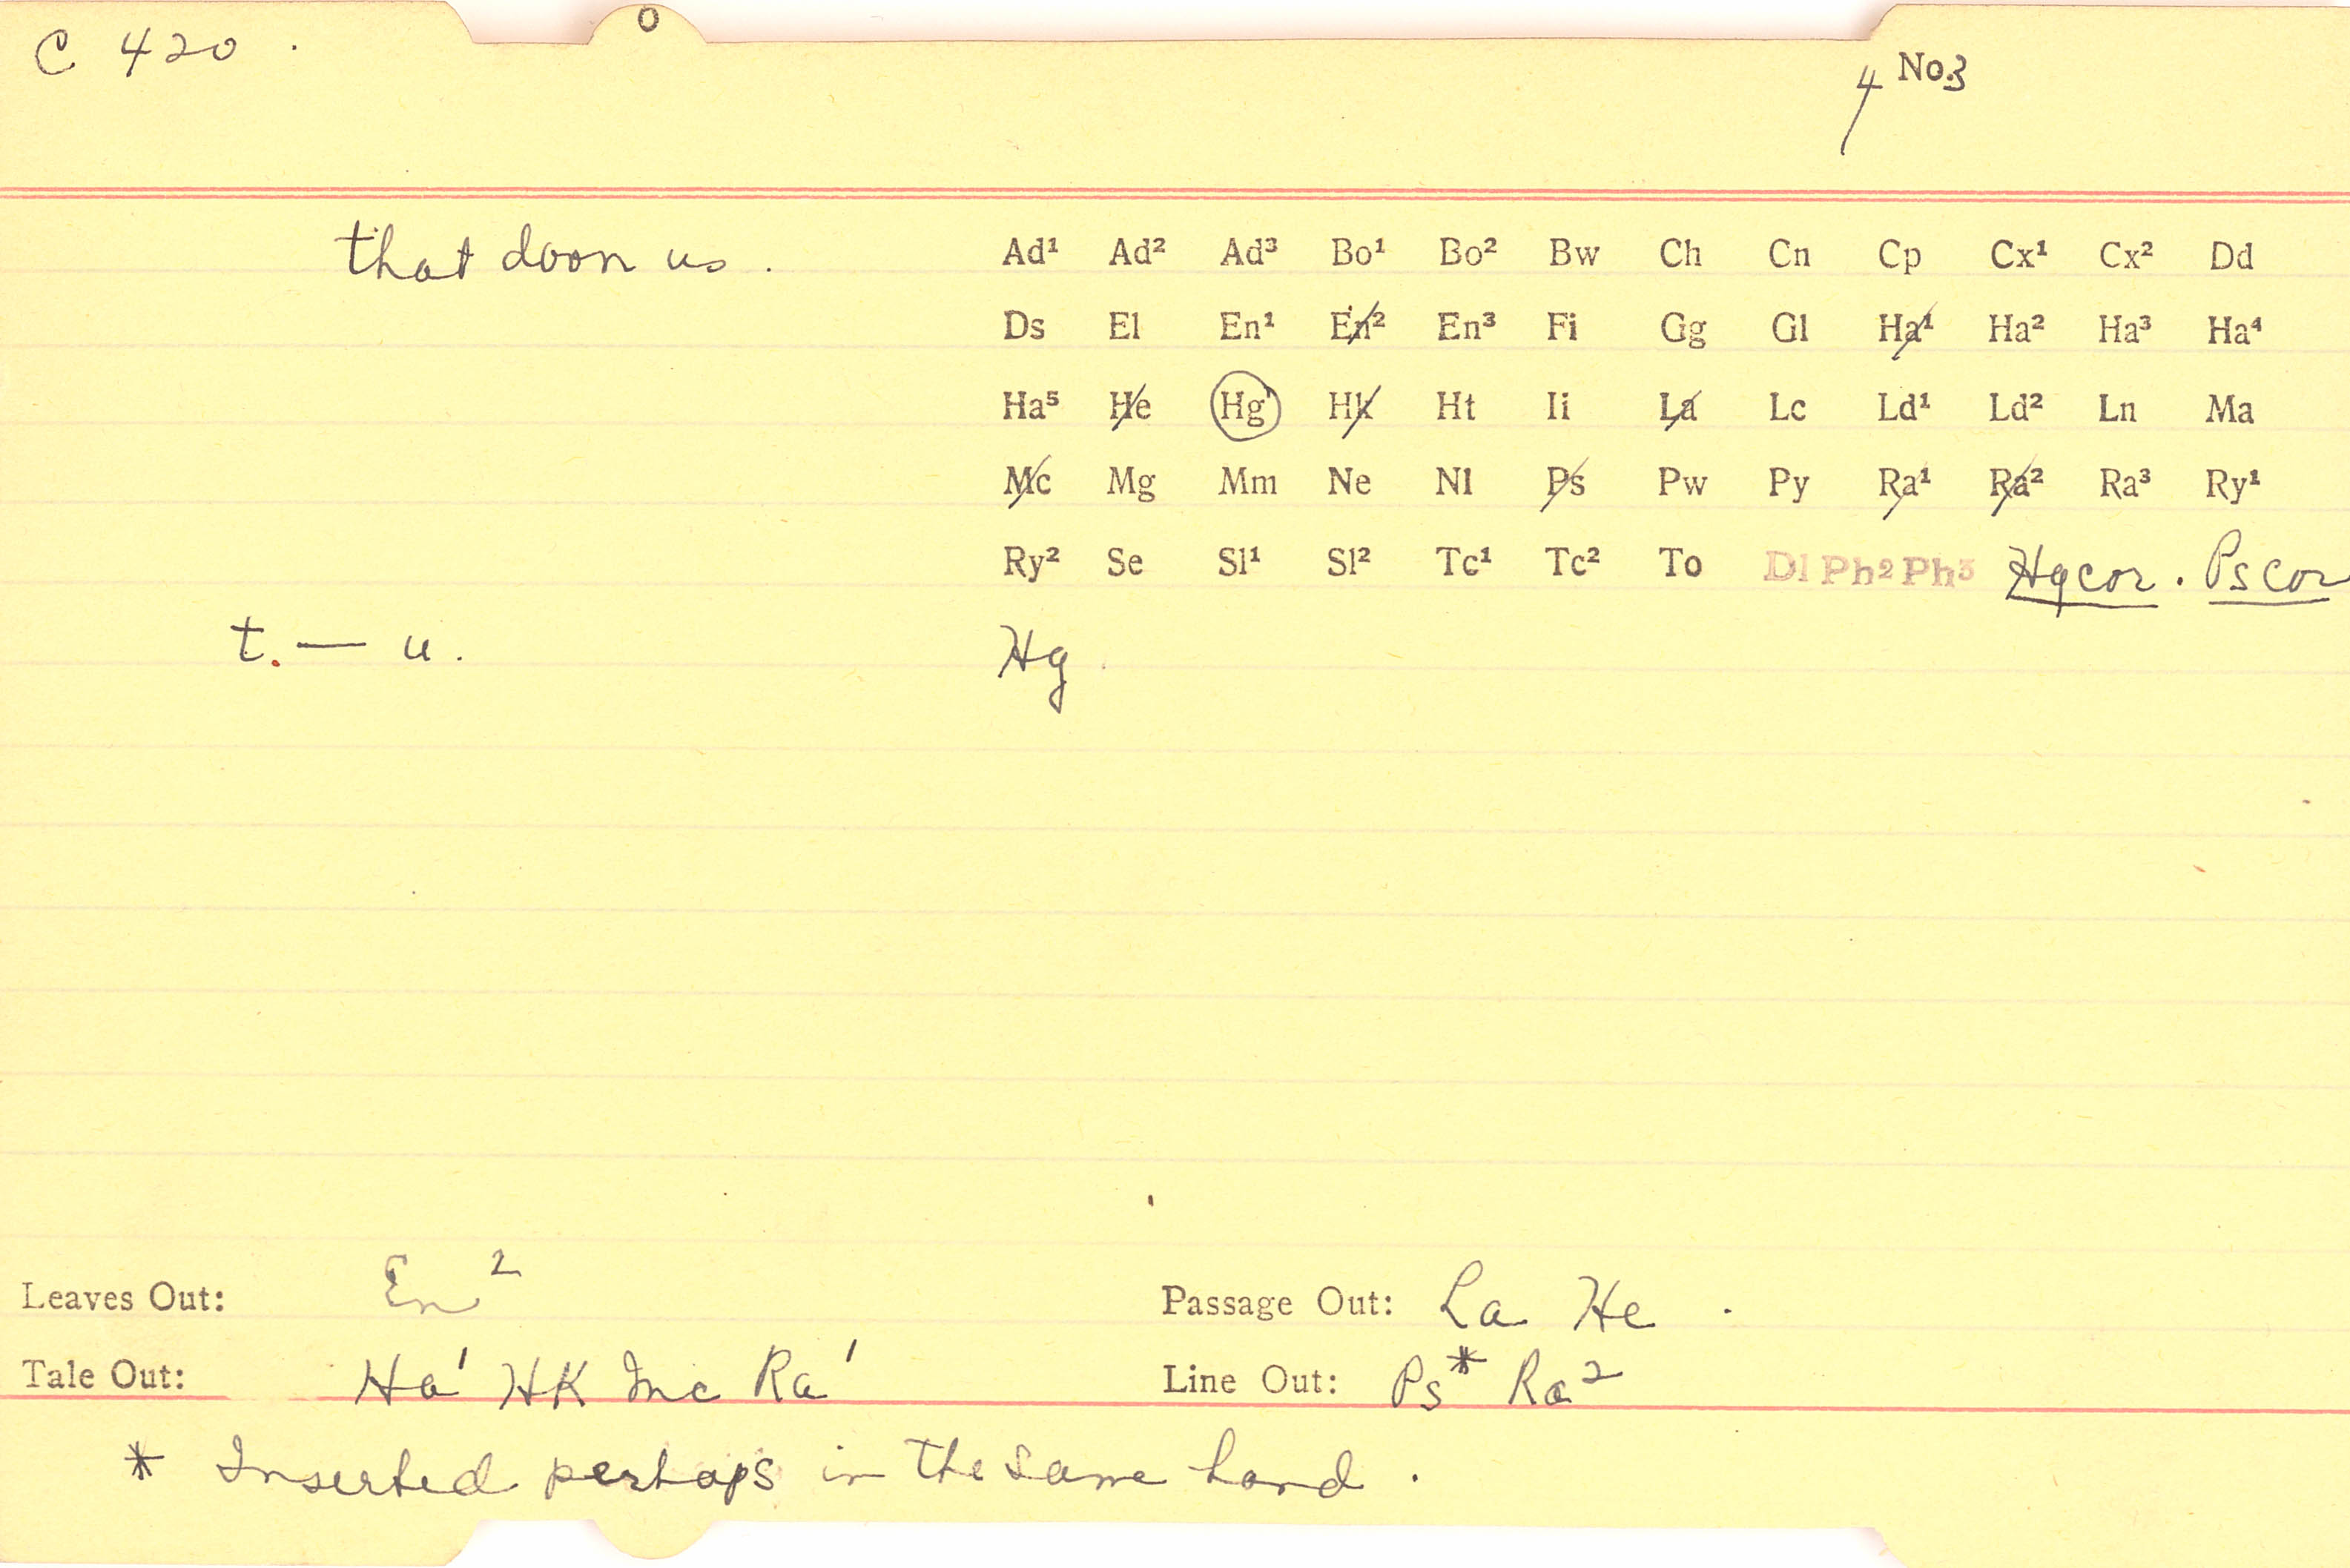 O
C 420 .
4 No.3
that doon us . Ad¹ Ad² Ad³ Bo¹ Bo² Bw Ch Cn Cp Cx¹ Cx² Dd
Ds El En¹ En² En³ Fi Gg Gl Ha¹ Ha² Ha³ Ha⁴
Ha⁵ He Hg Hk Ht Ii La Lc Ld¹ Ld² Ln Ma
Mc Mg Mm Ne Nl Ps Pw Py Ra¹ Ra² Ra³ Ry¹
Ry² Se Sl¹ Sl² Tc¹ Tc² To Dl Ph2 Ph3 Hgcor . Pscor
t. — u . Hg
Leaves Out: En² Passage Out: La He .
Tale Out: Ha¹ HK Mc Ra¹ Line Out: Ps* Ra²
* Inserted perhaps in the same hand .